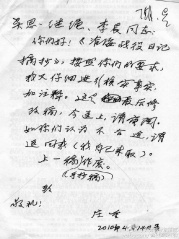 你们好！《淮海战役日记
摘抄》，按照你们的要求，
我又仔细进行核实事实，
如注释。这是最后修
改稿，今送上，请审阅。
如你们认为不合适，请
退回我（我自己来取）。
上一稿作废。
（另抄稿）
致
敬礼！
2010年4月14日